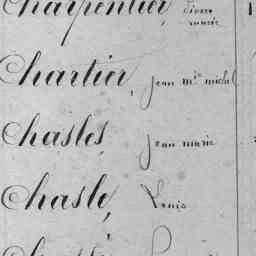 Charpentier, pierre marie
Chartier, jean m^ie michel
Chasles, jean marie
Chasle, Louis